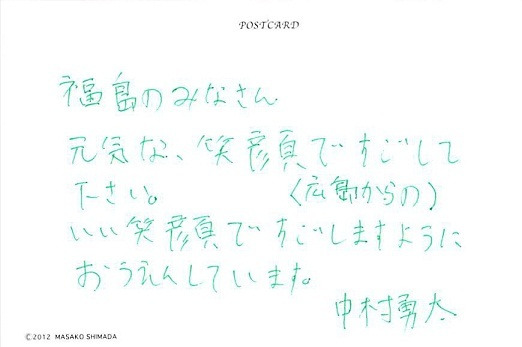 POSTCARD
福島のみなさん
元気な、笑顔ですごして
下さい。　　　　　(広島からの)
いい笑顔ですごしますように
おうえんしています。
中村勇太
©2012 MASAKO SHIMADA